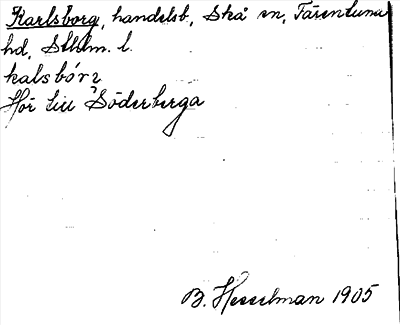 Karlsborg, handelsb, Skå sn, Färentuna
hd, Sthlm. l.
kalsbór2
Hör till Söderberga
B. Hesselman 1905